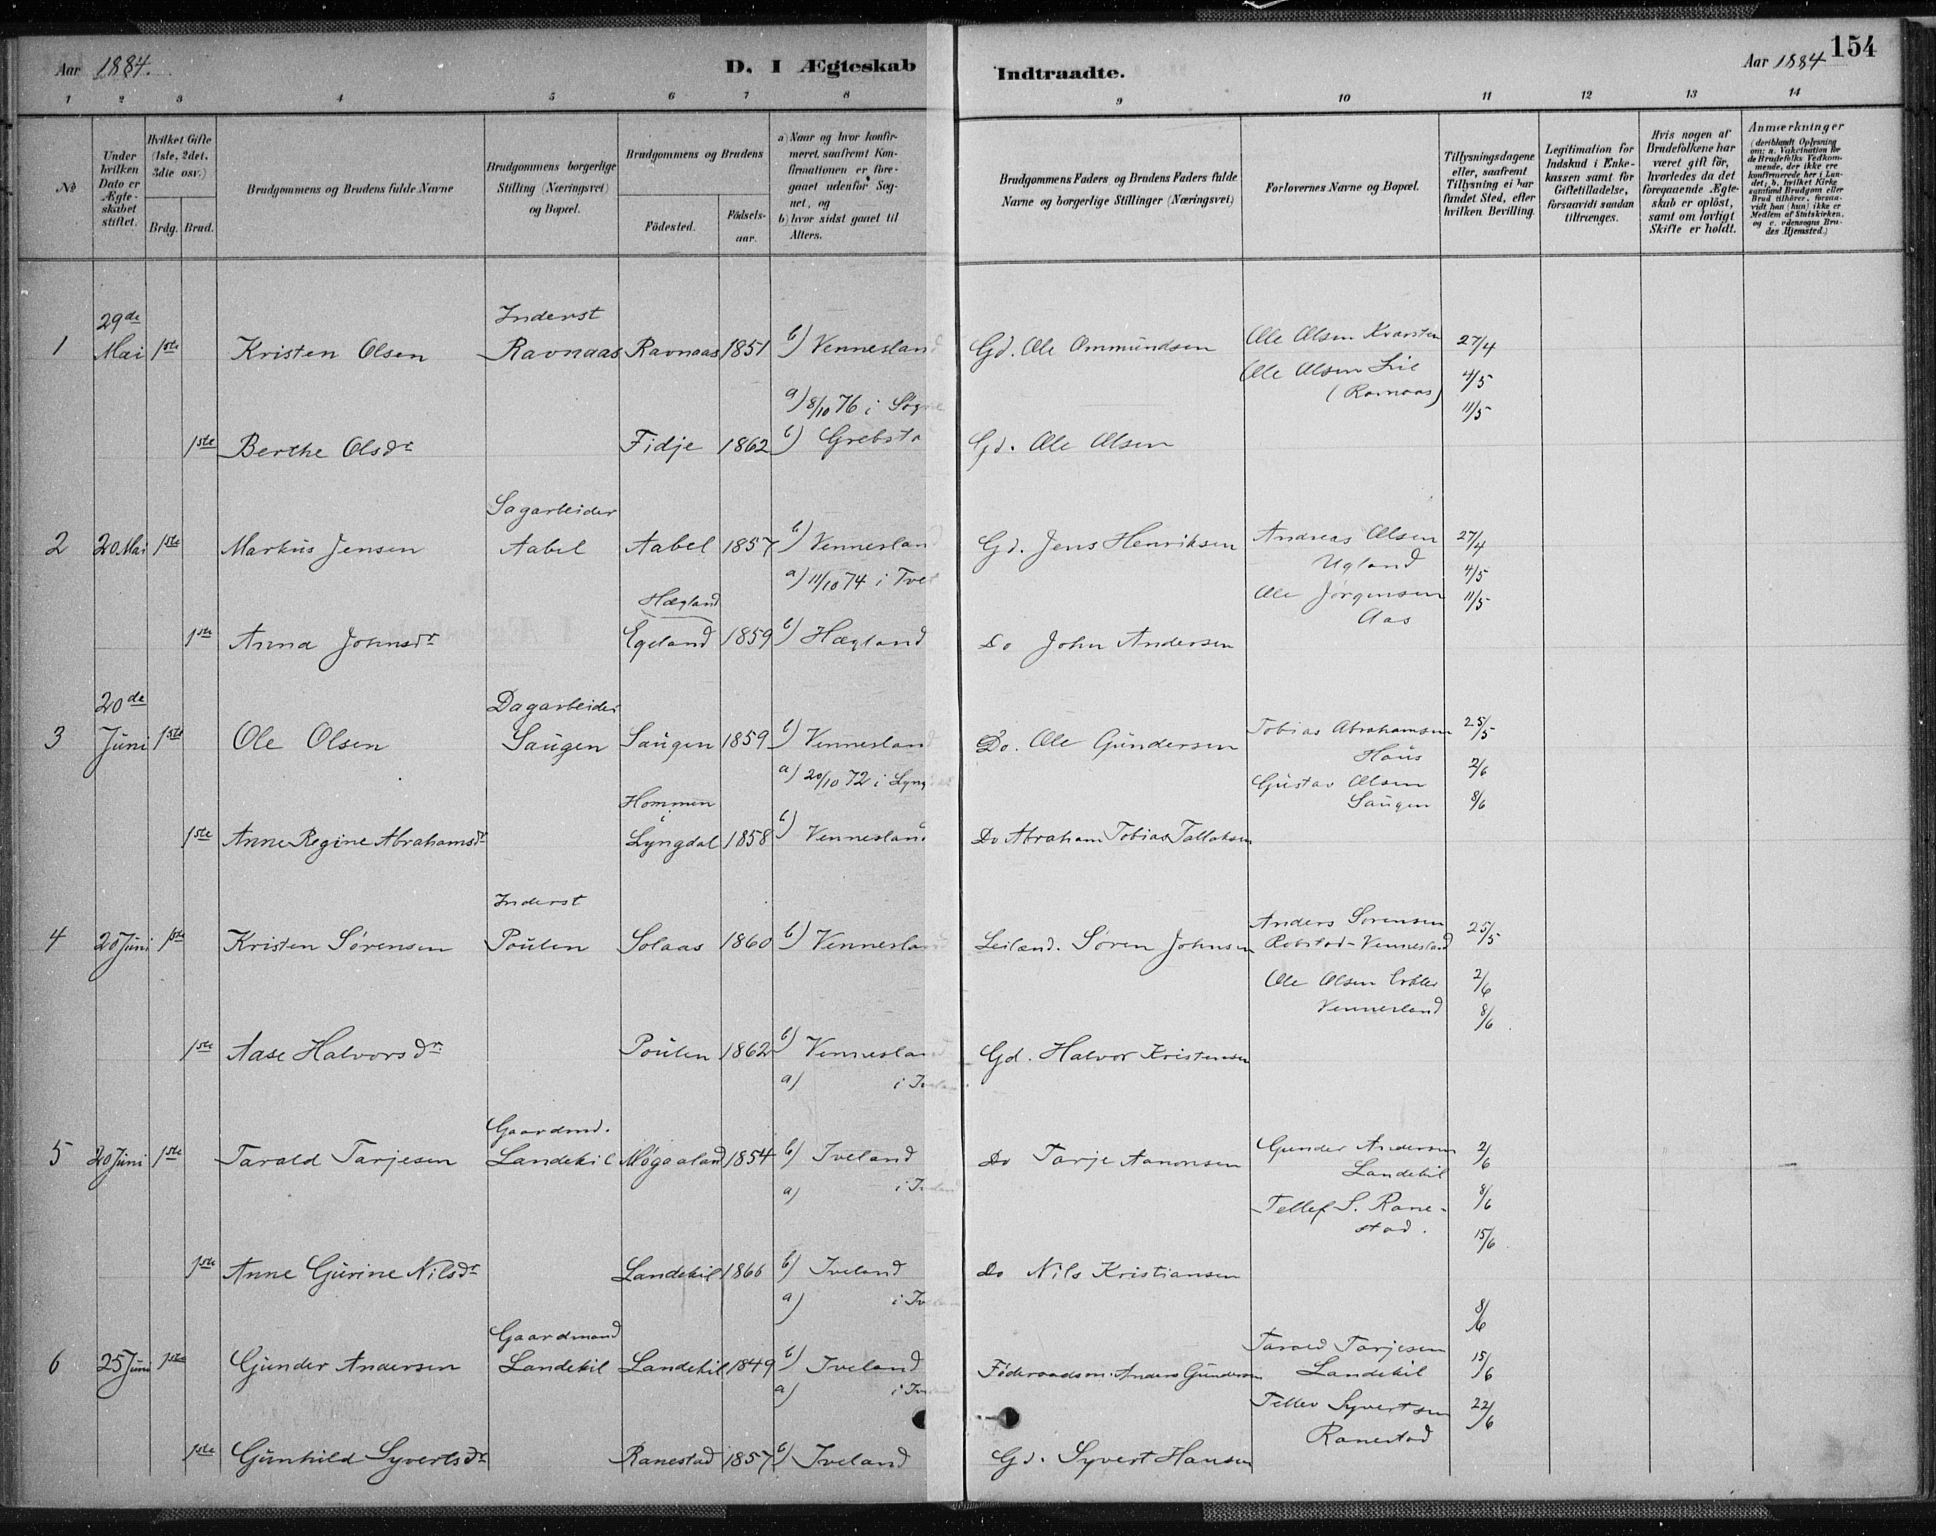 Aar 1884. D. I Ægteskab Indtraadte. Aar 1884 154
1 2 3 4 5 6 7 8 9 10 11 12 13 14
No
Under hvilken Dato er Ægteskabet stiftet.
Hvilket Gifte (1ste, 2det, 3die osv.)
Brdg. Brud.
Brudgommens og Brudens fulde Navne
Brudgommens borgerlige Stilling (Næringsvei) og Bopæl.
Brudgommens og Brudens
Fødested. Fødselsaar.
a) Naar og hvor konfirmeret, saafremt Konfirmationen er foregaaet udenfor Sognet, og
b) hvor sidst gaaet til Alters.
Brudgommens Faders og Brudens Faders fulde Navne og borgerlige Stillinger (Næringsvei)
Forlovernes Navne og Bopæl.
Tillysningsdagene eller, saafremt Tillysning ei har fundet Sted, efter hvilken Bevilling.
Legitimation for Indskud i Enkekassen samt for Giftetilladelse, forsaavidt saadan tiltrænges.
Hvis nogen af Brudefolkene har været gift før, hvorledes da det foregaaende Ægteskab er opløst, samt om lovligt Skifte er holdt.
Anmærkninger
(deriblandt Oplysning om: a. Vakcination for de Brudefolks Vedkommende, der ikke ere konfirmerede her i Landet, b. hvilket Kirkesamfund Brudgom eller Brud tilhører, forsaavidt han (hun) ikke er Medlem af Statskirken, og c. udensogns Brudes Hjemsted.)
29de Inderst
1 Mai 1ste Kristen Olsen Ravnaas Ravnaas 1851 b) Vennesland Gd. Ole Ommundsen Ole Olsen Kvarsten 27/4
Ole Olsen Lie 4/5
(Ravnaas) 11/5
a) 8/10 76 i Søgne
1ste Berthe Olsdr Fidje 1862 b) Grebsta Gd. Ole Olsen
Sagarbeider
2 20 Mai 1ste Markus Jensen Aabel Aabel 1857 b) Vennesland Gd. Jens Henriksen Andreas Olsen 27/4
Ugland 4/5
a) 11/10 74 i Tvet
Hægland Ole Jørgensen 11/5
Aas
1ste Anna Johnsdr Egeland 1859 b) Hægland Do John Andersen
20de Dagarbeider
3 Juni 1ste Ole Olsen Saugen Saugen 1859 b) Vennesland Do. Ole Gundersen Tobias Abrahamsen 25/5
Haus 2/6
a) 20/10 72 i Lyngdal Gustav Olsen
Hommen Saugen 8/6
i
1ste Anne Regine Abrahamsdr Lyngdal 1858 b) Vennesland Do Abraham Tobias Tallaksen
Inderst
4 20 Juni 1ste Kristen Sørensen Poulen Solaas 1860 b) Vennesland Leilænd. Søren Johnsen Anders Sørensen 25/5
Robstad - Vennesland
Ole Olsen 2/6
Vennesland 8/6
1ste Aase Halvorsdr Poulen 1862 b) Vennesland Gd. Halvor Kristensen
a) i Iveland
Gaardmd.
5 20 Juni 1ste Tarald Tarjesen Landekil Møgaaland 1854 b) Iveland Do Tarje Aanonsen Gunder Andersen 2/6
Landekil
a) i Iveland
Tellef S. Rane- 8/6
stad. 15/6
1ste Anne Gurine Nilsdr Landekil 1866 b) Iveland Do Nils Kristiansen
a) i Iveland
Gaardmand 8/6
6 25 Juni 1ste Gunder Andersen Landekil Landekil 1849 b) Iveland Føderaadsm. Anders Gundersen Tarald Tarjesen
Landekil 15/6
a) i Iveland
Tellev Syvertsen 22/6
Ranestad
1ste Gunhild Syvertsdr Ranestad 1857 b) Iveland Gd. Syvert Hansen